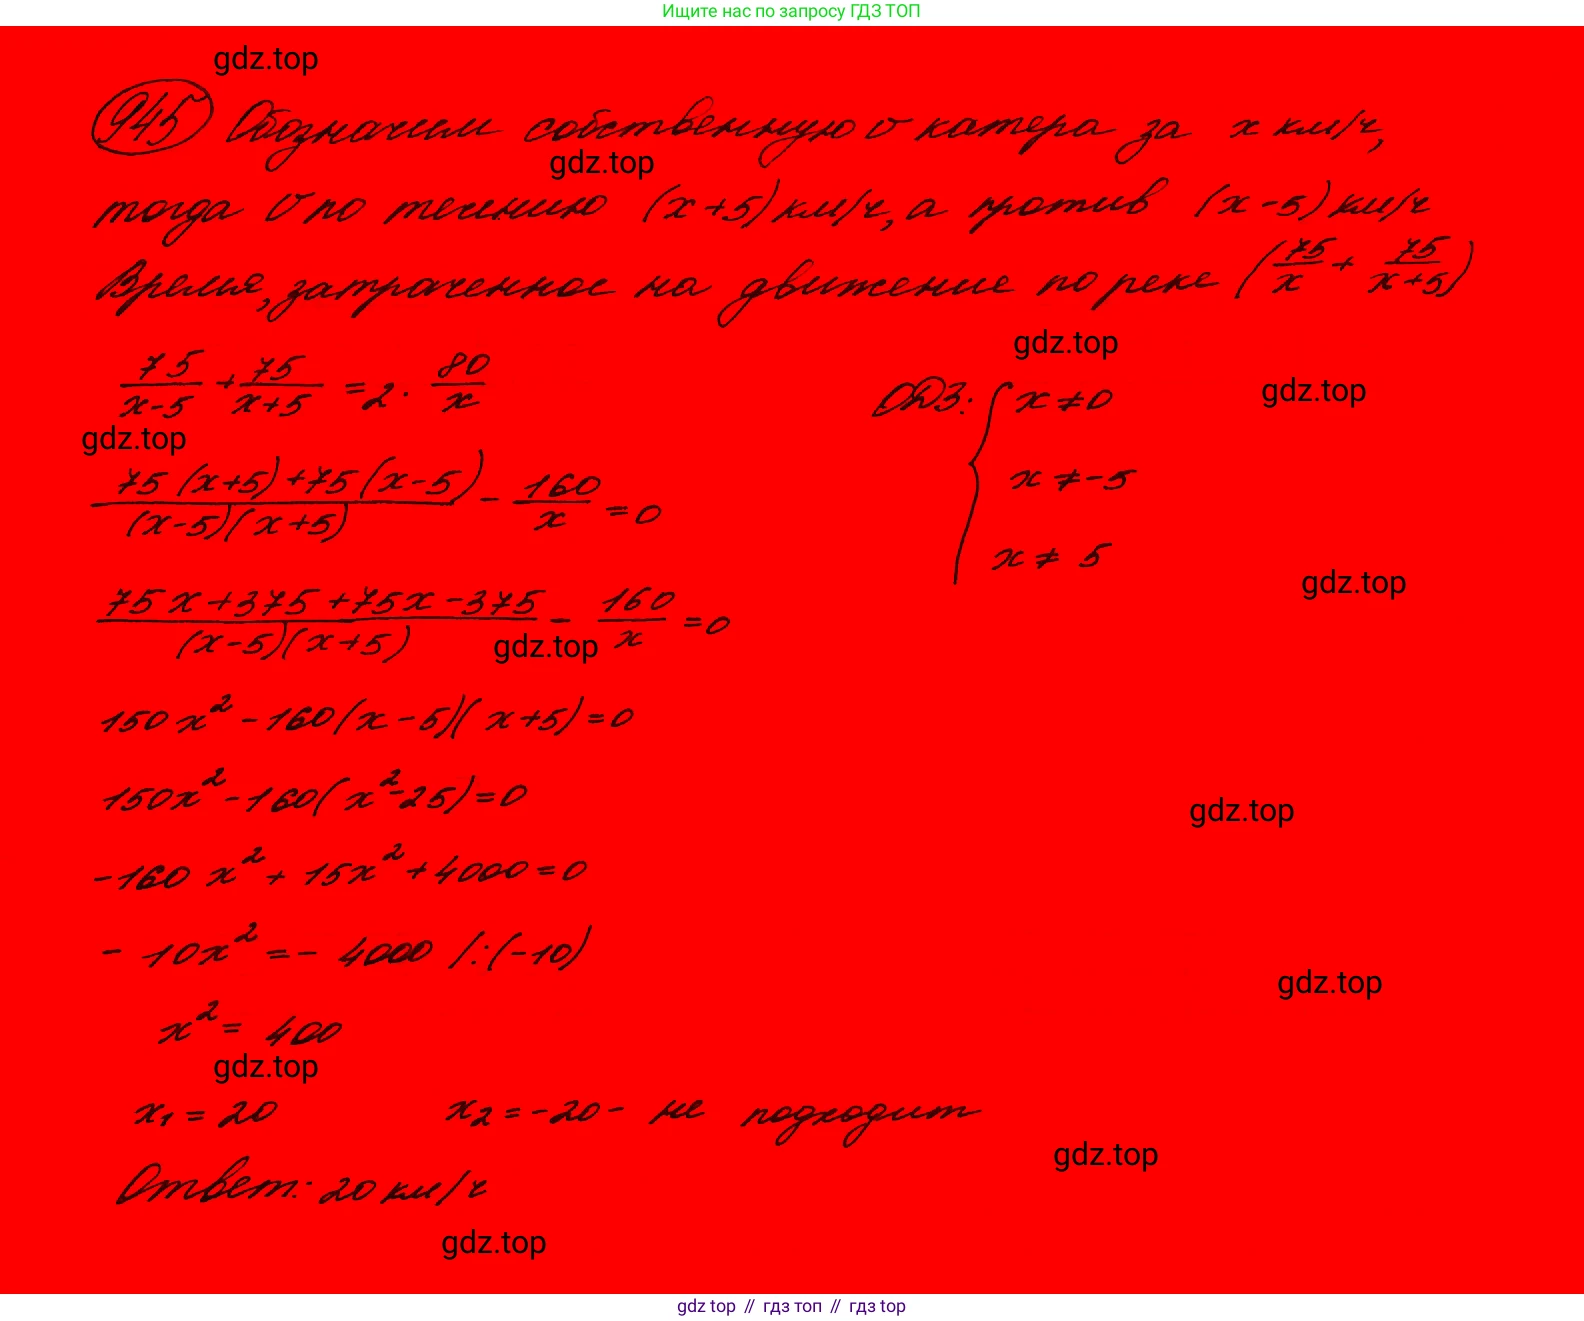 Ищите нас по запросу ГДЗ ТОП
gdz.top
945 Обозначим собственную v катера за x км/ч,
gdz.top
тогда v по течению (x+5) км/ч, а против (x-5) км/ч
Время, затраченное на движение по реке (75/x + 75/(x+5))
gdz.top
75/(x-5) + 75/(x+5) = 2 · 80/x
ОДЗ: { x ≠ 0
gdz.top
gdz.top
(75(x+5)+75(x-5))/((x-5)(x+5)) - 160/x = 0
x ≠ -5
x ≠ 5
gdz.top
(75x+375+75x-375)/((x-5)(x+5)) - 160/x = 0
gdz.top
150x² - 160(x-5)(x+5) = 0
150x² - 160(x²-25) = 0
gdz.top
-160x² + 15x² + 4000 = 0
-10x² = -4000 /:(-10)
gdz.top
x² = 400
gdz.top
x₁ = 20 x₂ = -20 - не подходит
gdz.top
Ответ: 20 км/ч
gdz.top
gdz top // гдз топ // гдз top